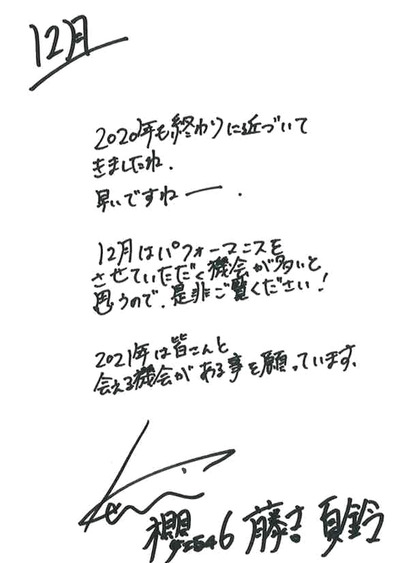 12月
2020年も終わりに近づいて
きましたね.
早いですねー.
12月はパフォーマンスを
させていただく機会が多いと
思うので、是非ご覧ください!
2021年は皆さんと
会える機会がある事を願っています.
櫻坂46 藤吉 夏鈴